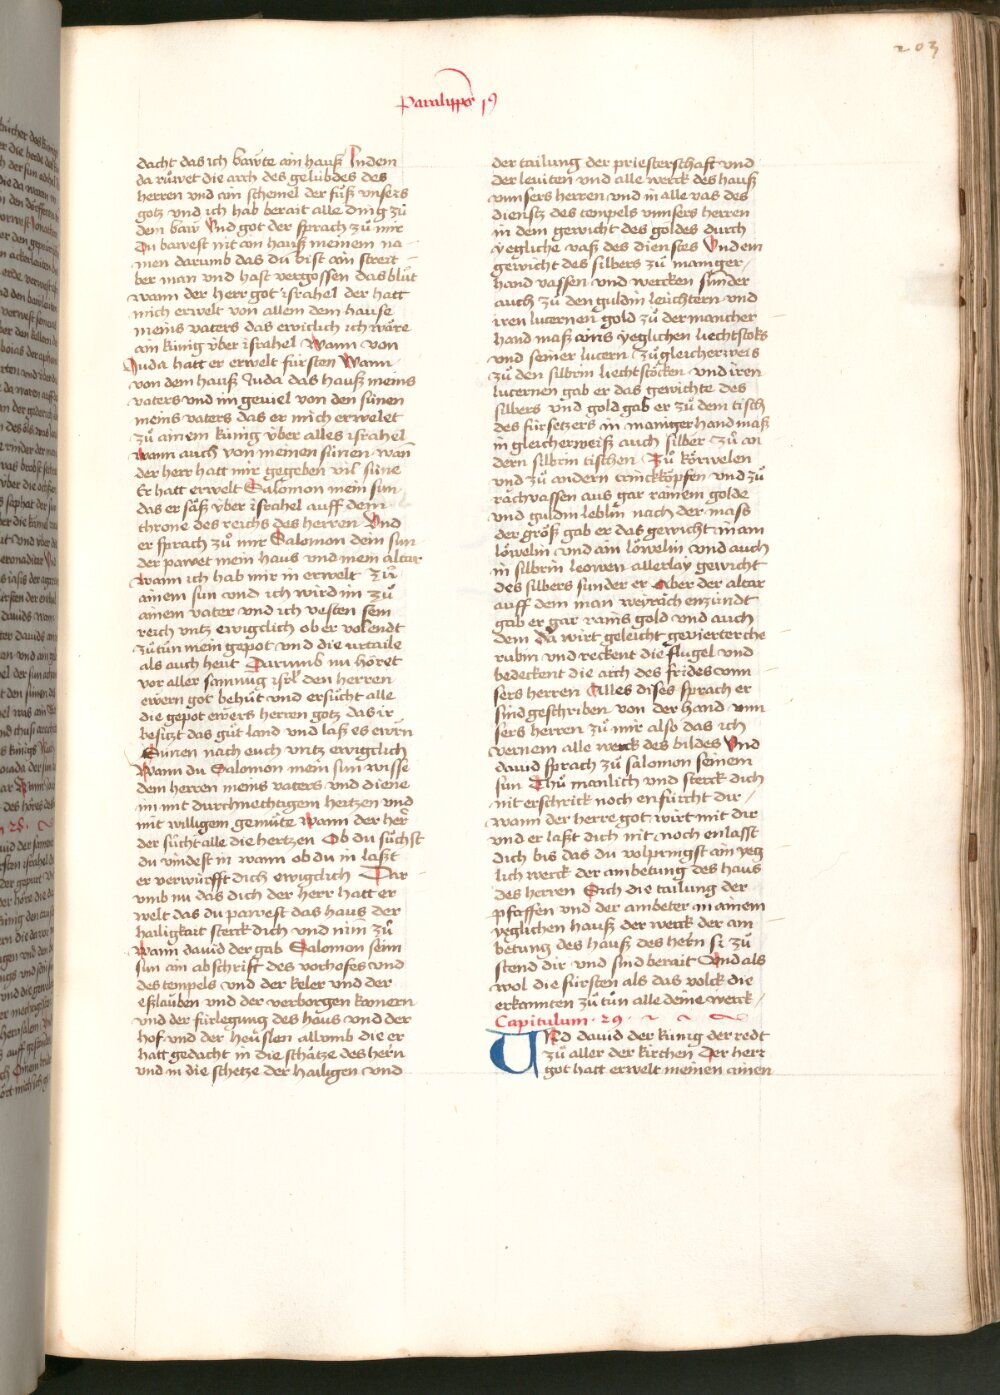 203
Paralippo 1⁹
dacht das ich bawte ain hauß Indem
da růwet die arch des gelübdes des
herren vnd ain schemel der fůß vnsers
gotz vnd ich hab berait alle ding zů
dem baw Vnd got der sprach zů mir
Du bawest nit ain hauß meinem na
men darumb das du bist ain streit
ber man vnd hast vergossen das blůt
wann der herr got israhel der hatt
mich erwelt von allem dem hause
meins vaters das ewiclich ich wäre
ain künig v̈ber israhel Wann von
Juda hatt er erwelt fürsten Wann
von dem hauß Juda das hauß meins
vaters vnd im geuiel von den sünen
meins vaters das er mich erwelet
zů ainem künig v̈ber alles israhel
Wann auch von meinen sünen wan
der herr hatt mir gegeben vil süne
Er hatt erwelt Salomon mein sun
das er säß v̈ber israhel auff dem
throne des reichs des herren Vnd
er sprach zů mir Salomon dein sun
der pawet mein haus vnd mein altar
Wann ich hab mir in erwelt zů
ainem sun vnd ich wird im zů
ainem vater vnd ich vesten sein
reich vntz ewigclich ob er volendt
zůtůn mein gepot vnd die vrtaile
als auch heut Darumb nu höret
vor aller samnug isrl den herren
ewern got behüt vnd ersůcht alle
die gepot ewers herren gotz das ir
besitzt das gůt land vnd laß es ewrn
Sünen nach euch vntz ewigclich
Wann du Salomon mein sun wisse
dem herren meins vaters vnd diene
im mit durchnechtigem hertzen vnd
mit willigem gemüte Wann der her
der sůcht alle die hertzen Ob du sůchst
du vindest in wann ob du in laßt
er verwürfft dich ewigclich Dar
vmb nu das dich der herr hatt er
welt das du pawest das haus der
hailigkait sterck dich vnd nim zů
Wann dauid der gab Salomon seim
sun ain abschrift des vorhofes vnd
des tempels vnd der keler vnd der
eßlauben vnd der verborgen kamern
vnd der fürlegung des haus vnd der
hof vnd der heuslen allvmb die er
hatt gedacht in die schätze des hern
vnd in die schetze der hailigen vnd
der tailung der priesterschaft vnd
der leuiten vnd alle werck des hauß
vnnsers herren vnd in alle vas des
dienstz des tempels vnnsers herren
in dem gewicht des goldes durch
yegliche vaß des dienstes Vnd em
gewicht des silbers zů maniger
hand vassen vnd wercken sunder
auch zů den guldin leuchtern vnd
iren lucernen gold zů der mancher
hand maß ains yeglichen liechtstoks
vnd seiner lucern zů gleicherweis
zů den silbrin liechtstöcken vnd iren
lucernen gab er das gewichte des
silbers vnd gold gab er zů dem tisch
des fürsetzers in maniger hand maß
in gleicherweiß auch silber zů an
dern silbrin tischen Zů körwelen
vnd zů andern trinckköpfen vnd zů
rächvassen aus gar rainem golde
vnd guldin leblin nach der mass
der größ gab er das gewicht in am
löwelin vnd ain löwelin vnd auch
in silbrin leowen allerlay gewicht
des silbers sunder er Aber der altar
auff dem man weyräch enzündt
gab er gar rains gold vnd auch
dem da wirt geleicht gevierter che
rubin vnd reckent die flugel vnd
bedeckent die arch des frides vnn
sers herren Alles dises sprach er
sind geschriben von der hand vnn
sers herren zů mir also das ich
vernem alle werck des bildes Vnd
dauid sprach zů salomon seinem
sun Thů manlich vnd sterck dich
nit erschrick noch enfürcht dir
wann der herre got wirt mit dir
vnd er laßt dich nit noch enlasst
dich bis das du volpringst ain yeg
lich werck der ambetung des haus
des herren Sich die tailung der
pfaffen vnd der ambeter in ainem
yeglichen hauß der werck der am
betung des hauß des hern si zů
stend dir vnd sind berait Vnd als
wol die fürsten als das volck die
erkannten zů tůn alle deine werck
Capitulum · 29 ·
Vnd dauid der künig der redt
zů aller der kirchen Der herr
got hatt erwelt meinen ainen